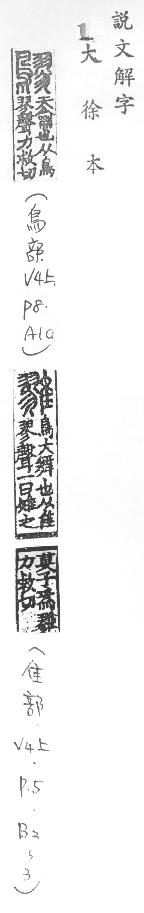 説文解字
1 大徐本
鷚 天鸙也从鳥
翏聲力救切
(鳥部 V4上 P8. A10)
雡 鳥大雛也从隹
翏聲一曰雉之
莫子爲雡
力救切
(隹部.V4上.P.5.B2~3)